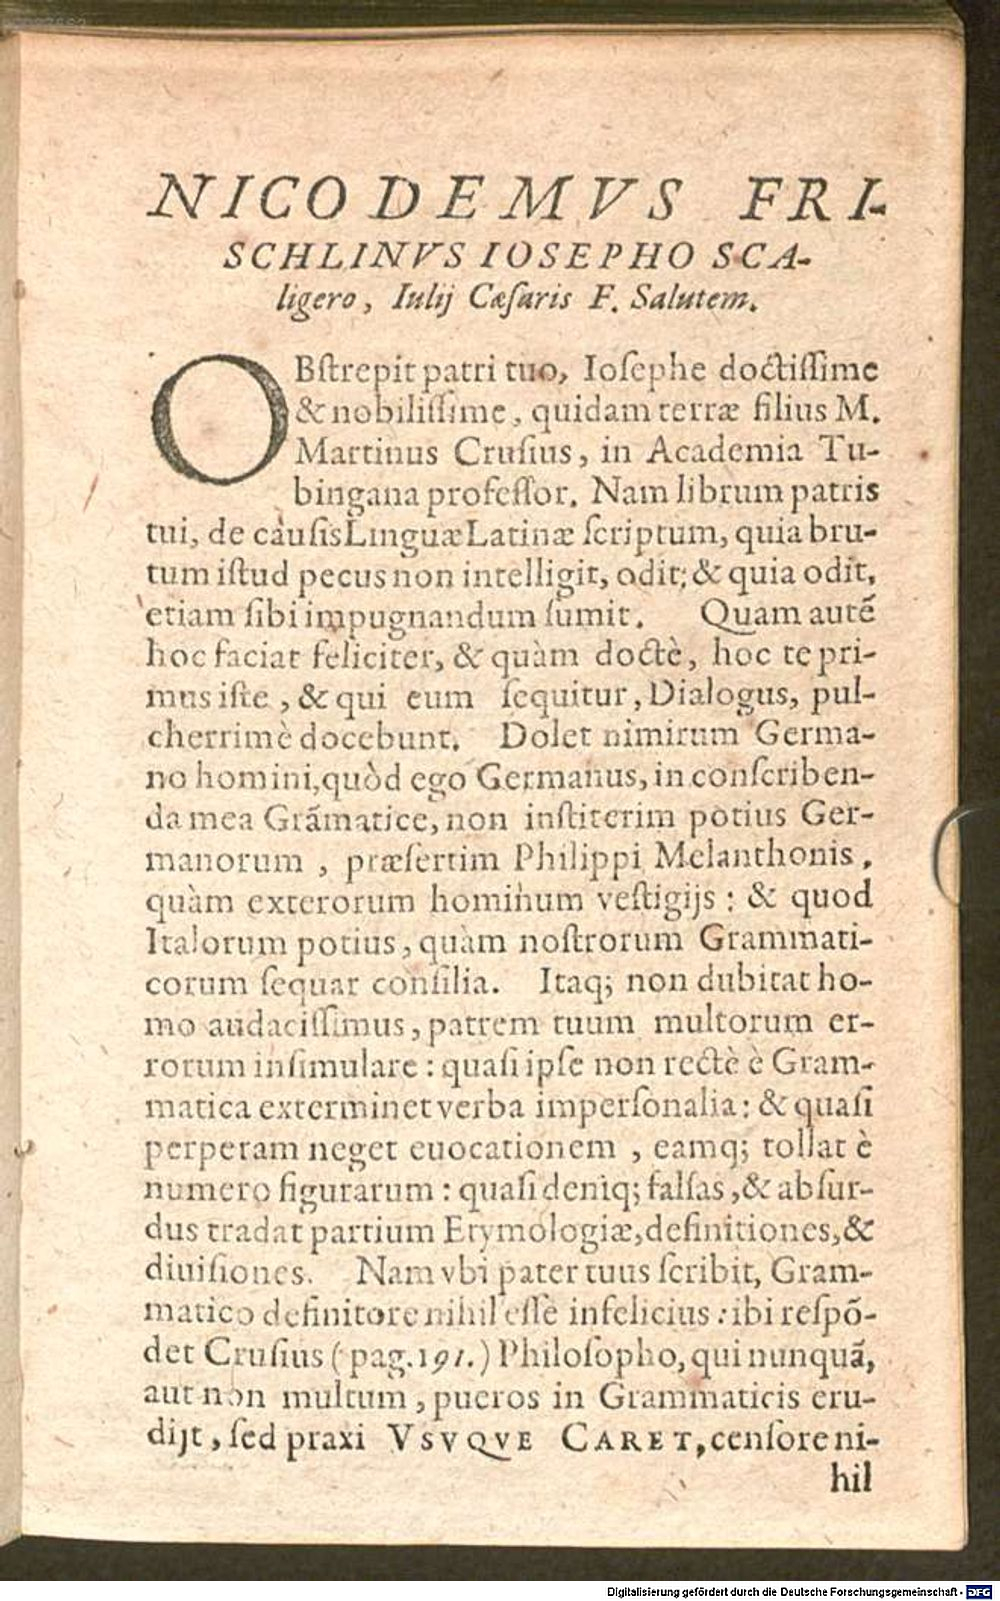 NICODEMVS FRI-
SCHLINVS IOSEPHO SCA-
ligero, Iulij Cæſaris F. Salutem.
OBſtrepit patri tuo, Ioſephe doctiſſime
& nobiliſſime, quidam terræ filius M.
Martinus Cruſius, in Academia Tu-
bingana profeſſor. Nam librum patris
tui, de cauſis Linguæ Latinæ ſcriptum, quia bru-
tum iſtud pecus non intelligit, odit; & quia odit,
etiam ſibi impugnandum ſumit. Quam autẽ
hoc faciat feliciter, & quàm doctè, hoc te pri-
mus iſte, & qui eum ſequitur, Dialogus, pul-
cherrimè docebunt. Dolet nimirum Germa-
no homini, quòd ego Germanus, in conſcriben-
da mea Grãmatice, non inſtiterim potius Ger-
manorum, præſertim Philippi Melanthonis,
quàm exterorum hominum veſtigijs: & quod
Italorum potius, quàm noſtrorum Grammati-
corum ſequar conſilia. Itaq; non dubitat ho-
mo audaciſſimus, patrem tuum multorum er-
rorum inſimulare: quaſi ipſe non rectè è Gram-
matica exterminet verba imperſonalia: & quaſi
perperam neget euocationem, eamq; tollat è
numero figurarum: quaſi deniq; falſas, & abſur-
dus tradat partium Etymologiæ, definitiones, &
diuiſiones. Nam vbi pater tuus ſcribit, Gram-
matico definitore nihil eſſe infelicius: ibi reſpõ-
det Cruſius (pag. 191.) Philoſopho, qui nunquã,
aut non multum, pueros in Grammaticis eru-
dijt, ſed praxi VSVQVE CARET, cenſore ni-
hil
Digitalisierung gefördert durch die Deutsche Forschungsgemeinschaft - DFG